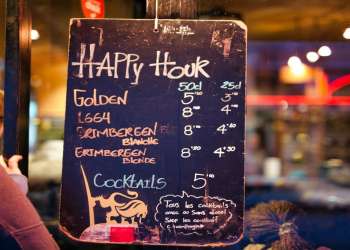 HAPPy HOUR
50cl 25cl
GOLDEN 5'50 3'50
1664 8'- 4'-
GRIMBERGEN 8'50 4'30
BLANCHE
GRIMBERGEN 8'50 4'30
BLONDE
COCKTAILS 5'50
Tous les cocktails
avec ou sans alcool
sauf les cocktails
champagne